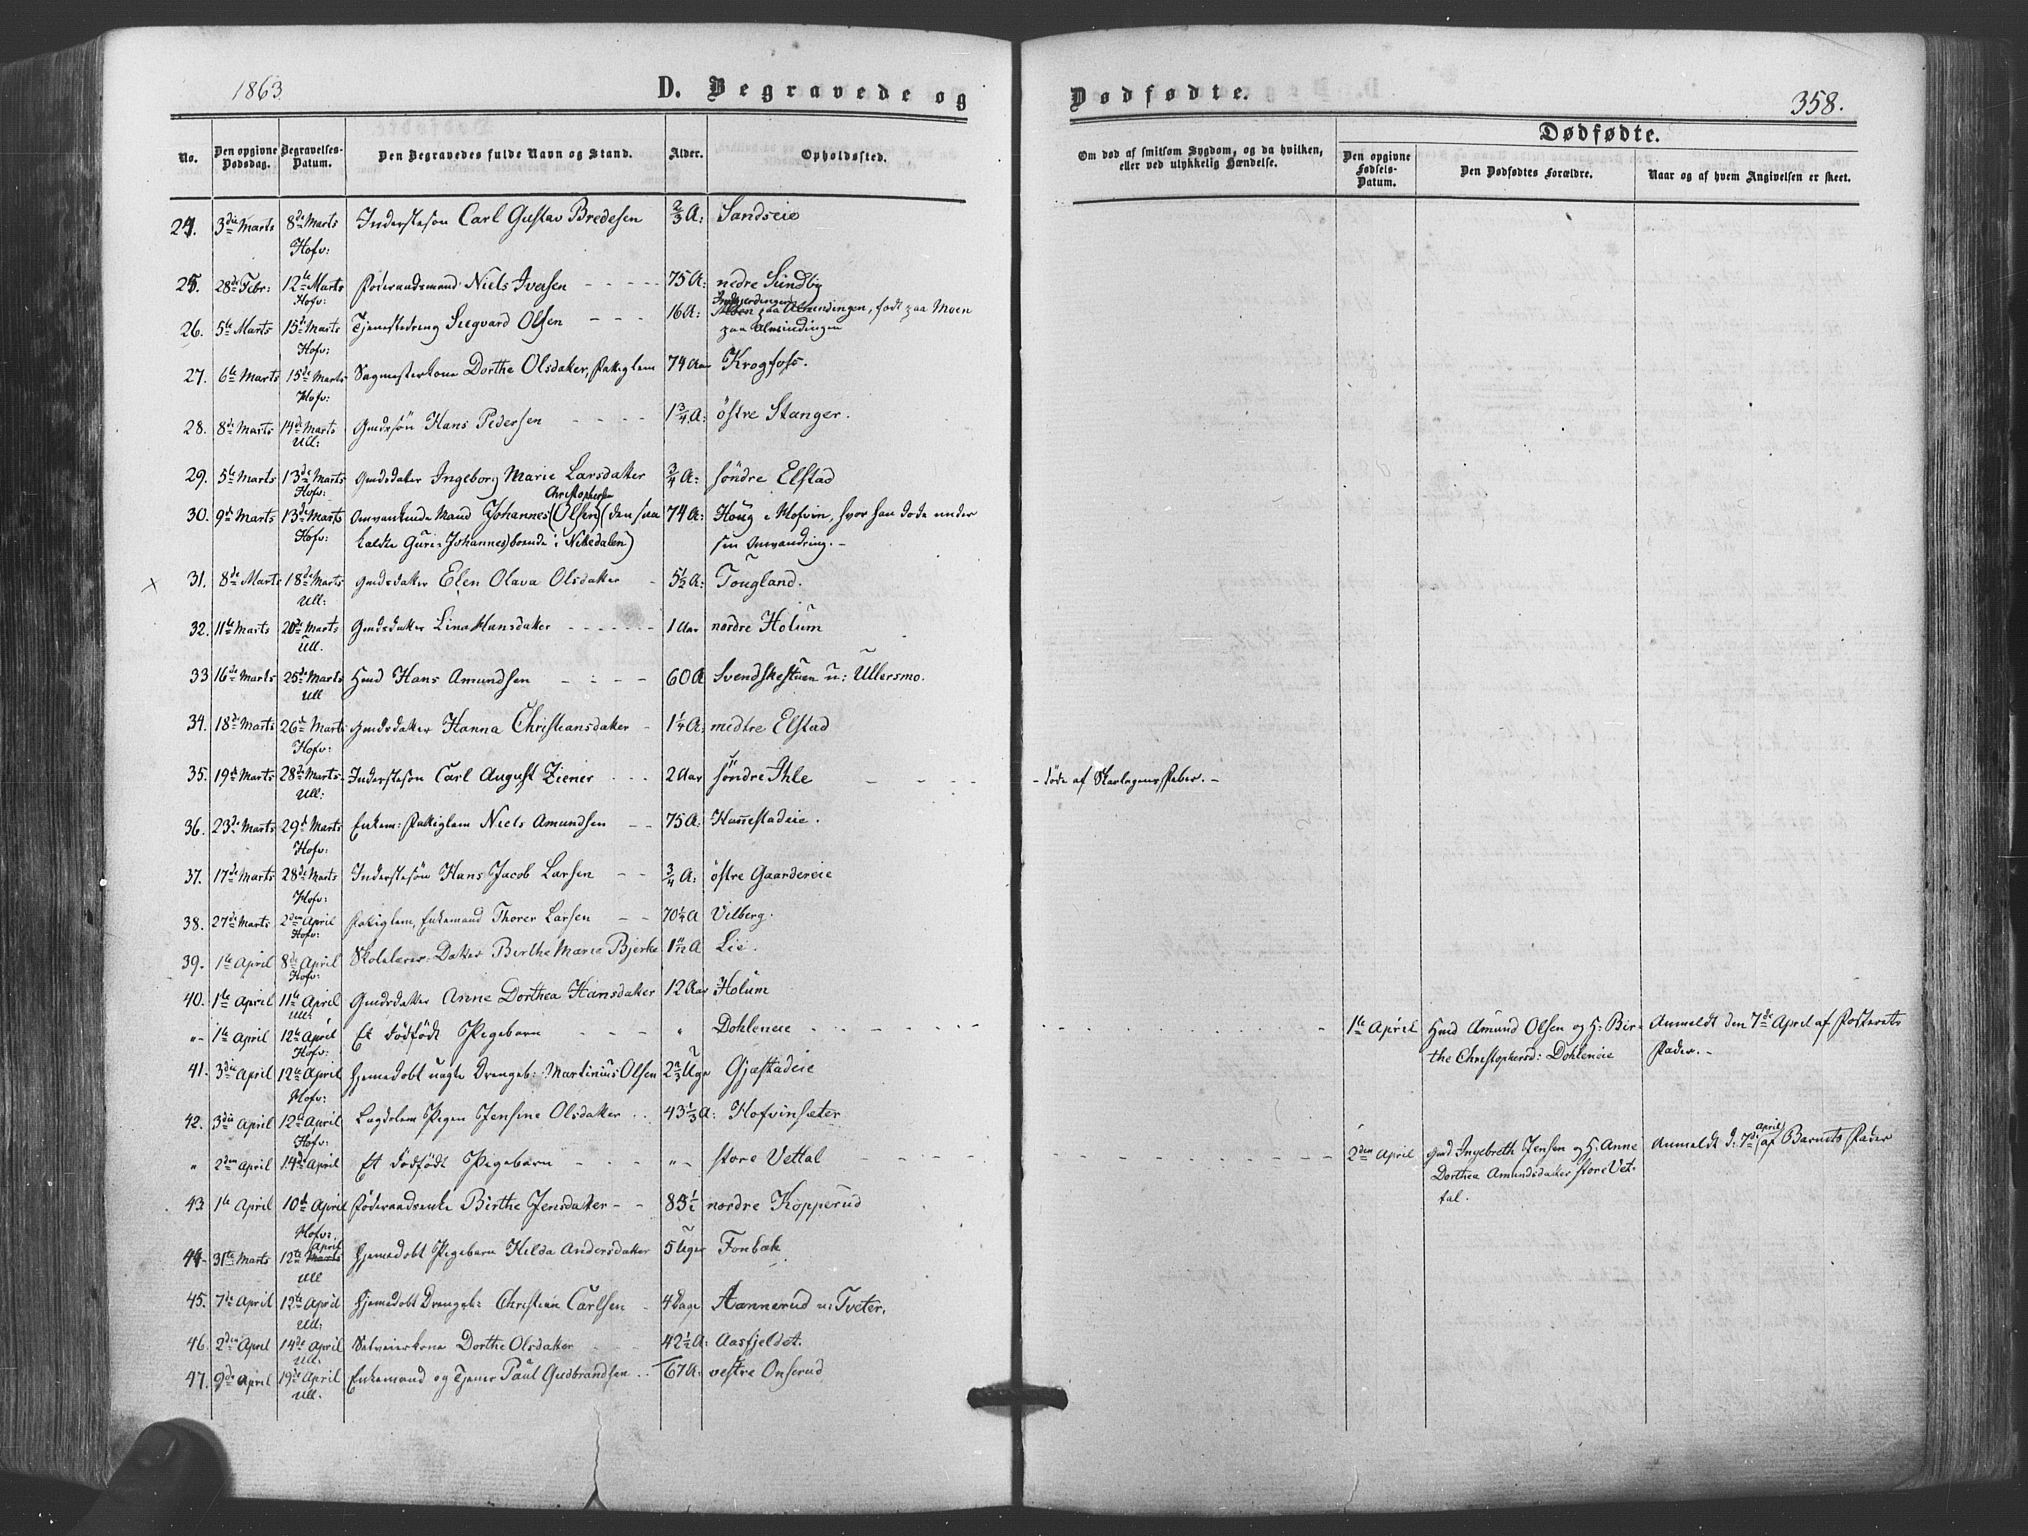 1863
D. Begravede og
Dødfødte.
358.
No.
Den opgivne Dødsdag.
Begravelses-Datum.
Den Begravedes fulde Navn og Stand.
Alder.
Opholdssted.
Om død af smitsom Sygdom, og da hvilken, eller ved ulykkelig Hændelse.
Dødfødte.
Den opgivne Fødsels-Datum.
Den Dødfødtes Forældre.
Naar og af hvem Angivelsen er skeet.
24. 3die Marts 8de Marts Inderstesøn Carl Gustav Bredesen 2/3 A: Sandseie
Hofv:
25. 28de Febr: 12te Marts Føderaadsmand Niels Iversen 75 A: nedre Sundby
Hofv:
26. 5te Marts 15de Marts Tjenestedreng Siegvard Olsen 16 A: paa Almindingen, født paa Moen
Hofv: paa Almindingen
27. 6te Marts 15de Marts Sagmesterkone Dorthe Olsdatter, Fattiglem 74 Aar Krogfoss.
Hofv:
28. 8de Marts 14de Marts Gmdssøn Hans Pedersen 1 3/4 A: østre Stanger.
Ull:
29. 5te Marts 13de Marts Gmdsdatter Ingeborg Marie Larsdatter 3/4 A: søndre Elstad
Hofv: Christophersen
30. 9de Marts 13de Marts Omvankende Mand Johannes (Olsen) (den saa 74 A: Houg i Hofvin, hvor han døde under
Hofv: kaldte Guri-Johannes) boende i Nittedalen) sin Omvandring. -
31. 8de Marts 18de Marts Gmdsdatter Elen Olava Olsdatter 5 1/2 A: Tougland.
Ull:
32. 11te Marts 20de Marts Gmdsdatter Lina Hansdatter 1 Aar nordre Holum
Ull.
33 16de Marts 25de Marts Hmd Hans Amundsen 60 A Svendskestuen u: Ullersmo.
Ull
34. 18de Marts 26de Marts Gmdsdatter Hanna Christiansdatter 1 1/4 A: medtre Elstad
Hofv:
35. 19de Marts 28de Marts Inderstesøn Carl August Ziener 2 Aar søndre Ihle - døde af Skarlagensfeber. -
Ull:
36. 23de Marts 29de Marts Enkem: Fattiglem Niels Amundsen 75 A: Hassestadeie.
Hofv:
37. 17de Marts 28de Marts Inderstesøn Hans Jacob Larsen 3/4 A: østre Gaardereie
Hofv:
38. 27de Marts 2den April Fattiglem, Enkemand Thorer Larsen 70 1/4 A Vilberg.
Hofv:
39. 1te April 8de April Skolelærer-Datter Birthe Marie Bjerke 1 11/12 A Lie.
Hofv:
40. 1te April 11te April Gmdsdatter Anne Dorthea Hansdatter 12 Aar Holum
Ull:
"- 1te April 12te April Et dødfødt Pigebarn " Dohleneie 1te April Hmd Amund Olsen og H: Bir- Anmeldt den 7de April af Postevets
Hofv: the Christophersd: Dohleneie Fader. -
41. 3die April 12te April Hjemedøbt uægte Drengeb: Martinius Olsen 2 2/3 Uge Gjæstadeie
Hofv:
42. 3die April 12te April Lægdslem Pigen Jensine Olsdatter 43 1/3 A: Hofvinsæter
Hofv:
" 2den April 14de April Et dødfødt Pigebarn "- store Vettal 2den April Gmd Ingebreth Jensen og H. Anne Anmeldt d: 7de (April) af Barnets Fader
Dorthea Amundsdatter store Vet-
tal.
43 1te April 10de April Føderaadsenke Birthe Jensdatter 85 1/2 nordre Kopperud
Hofv:
April
44. 31te Marts 12te Marts Hjemedøbt Pigebarn Hilda Andersdatter 5 Uger Fonbæk
Ull
45. 7de April 12te April Hjemedøbt Drengeb: Christian Carlsen 4 Dage Aannerud u: Tveter.
Ull:
46. 2den April 14de April Selveierkone Dorthe Olsdatter 42 1/2 A: Aasfjeldet.
Ull.
47. 9de April 19de April Enkemand og Tjener Paul Gudbrandsen 67 A: vestre Onsrud
Ull.